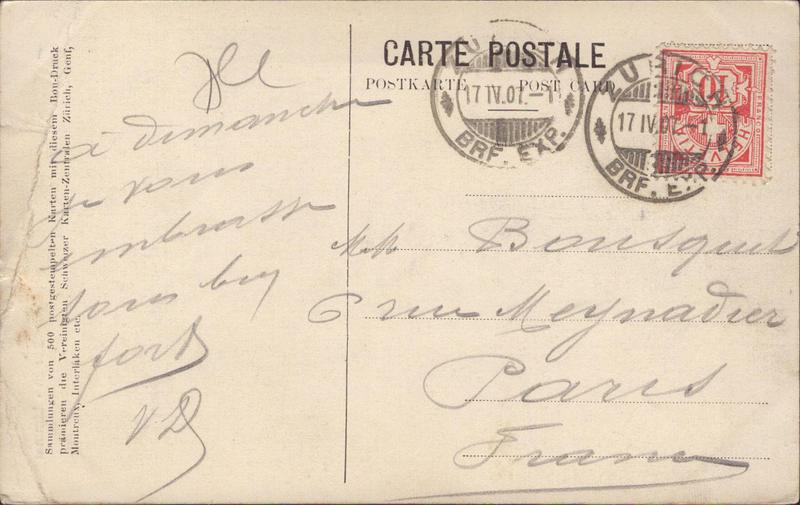 CARTE POSTALE
POSTKARTE POST CARD
ZÜRICH
17 IV. 07. - 1
BRF. EXP.
ZÜRICH
17 IV. 07. - 1
BRF. EXP.
FRANCO
HELVETIA
10
à dimanche
je vous
embrasse
tous bien
fort
VD
Bousquet
6 rue Meynadier
Paris
France
Sammlungen von 500 postgestempelten Karten mit diesem Bon-Druck
prämieren die Vereinigten Schweizer Karten-Zentralen Zürich, Genf,
Montreux, Interlaken etc.